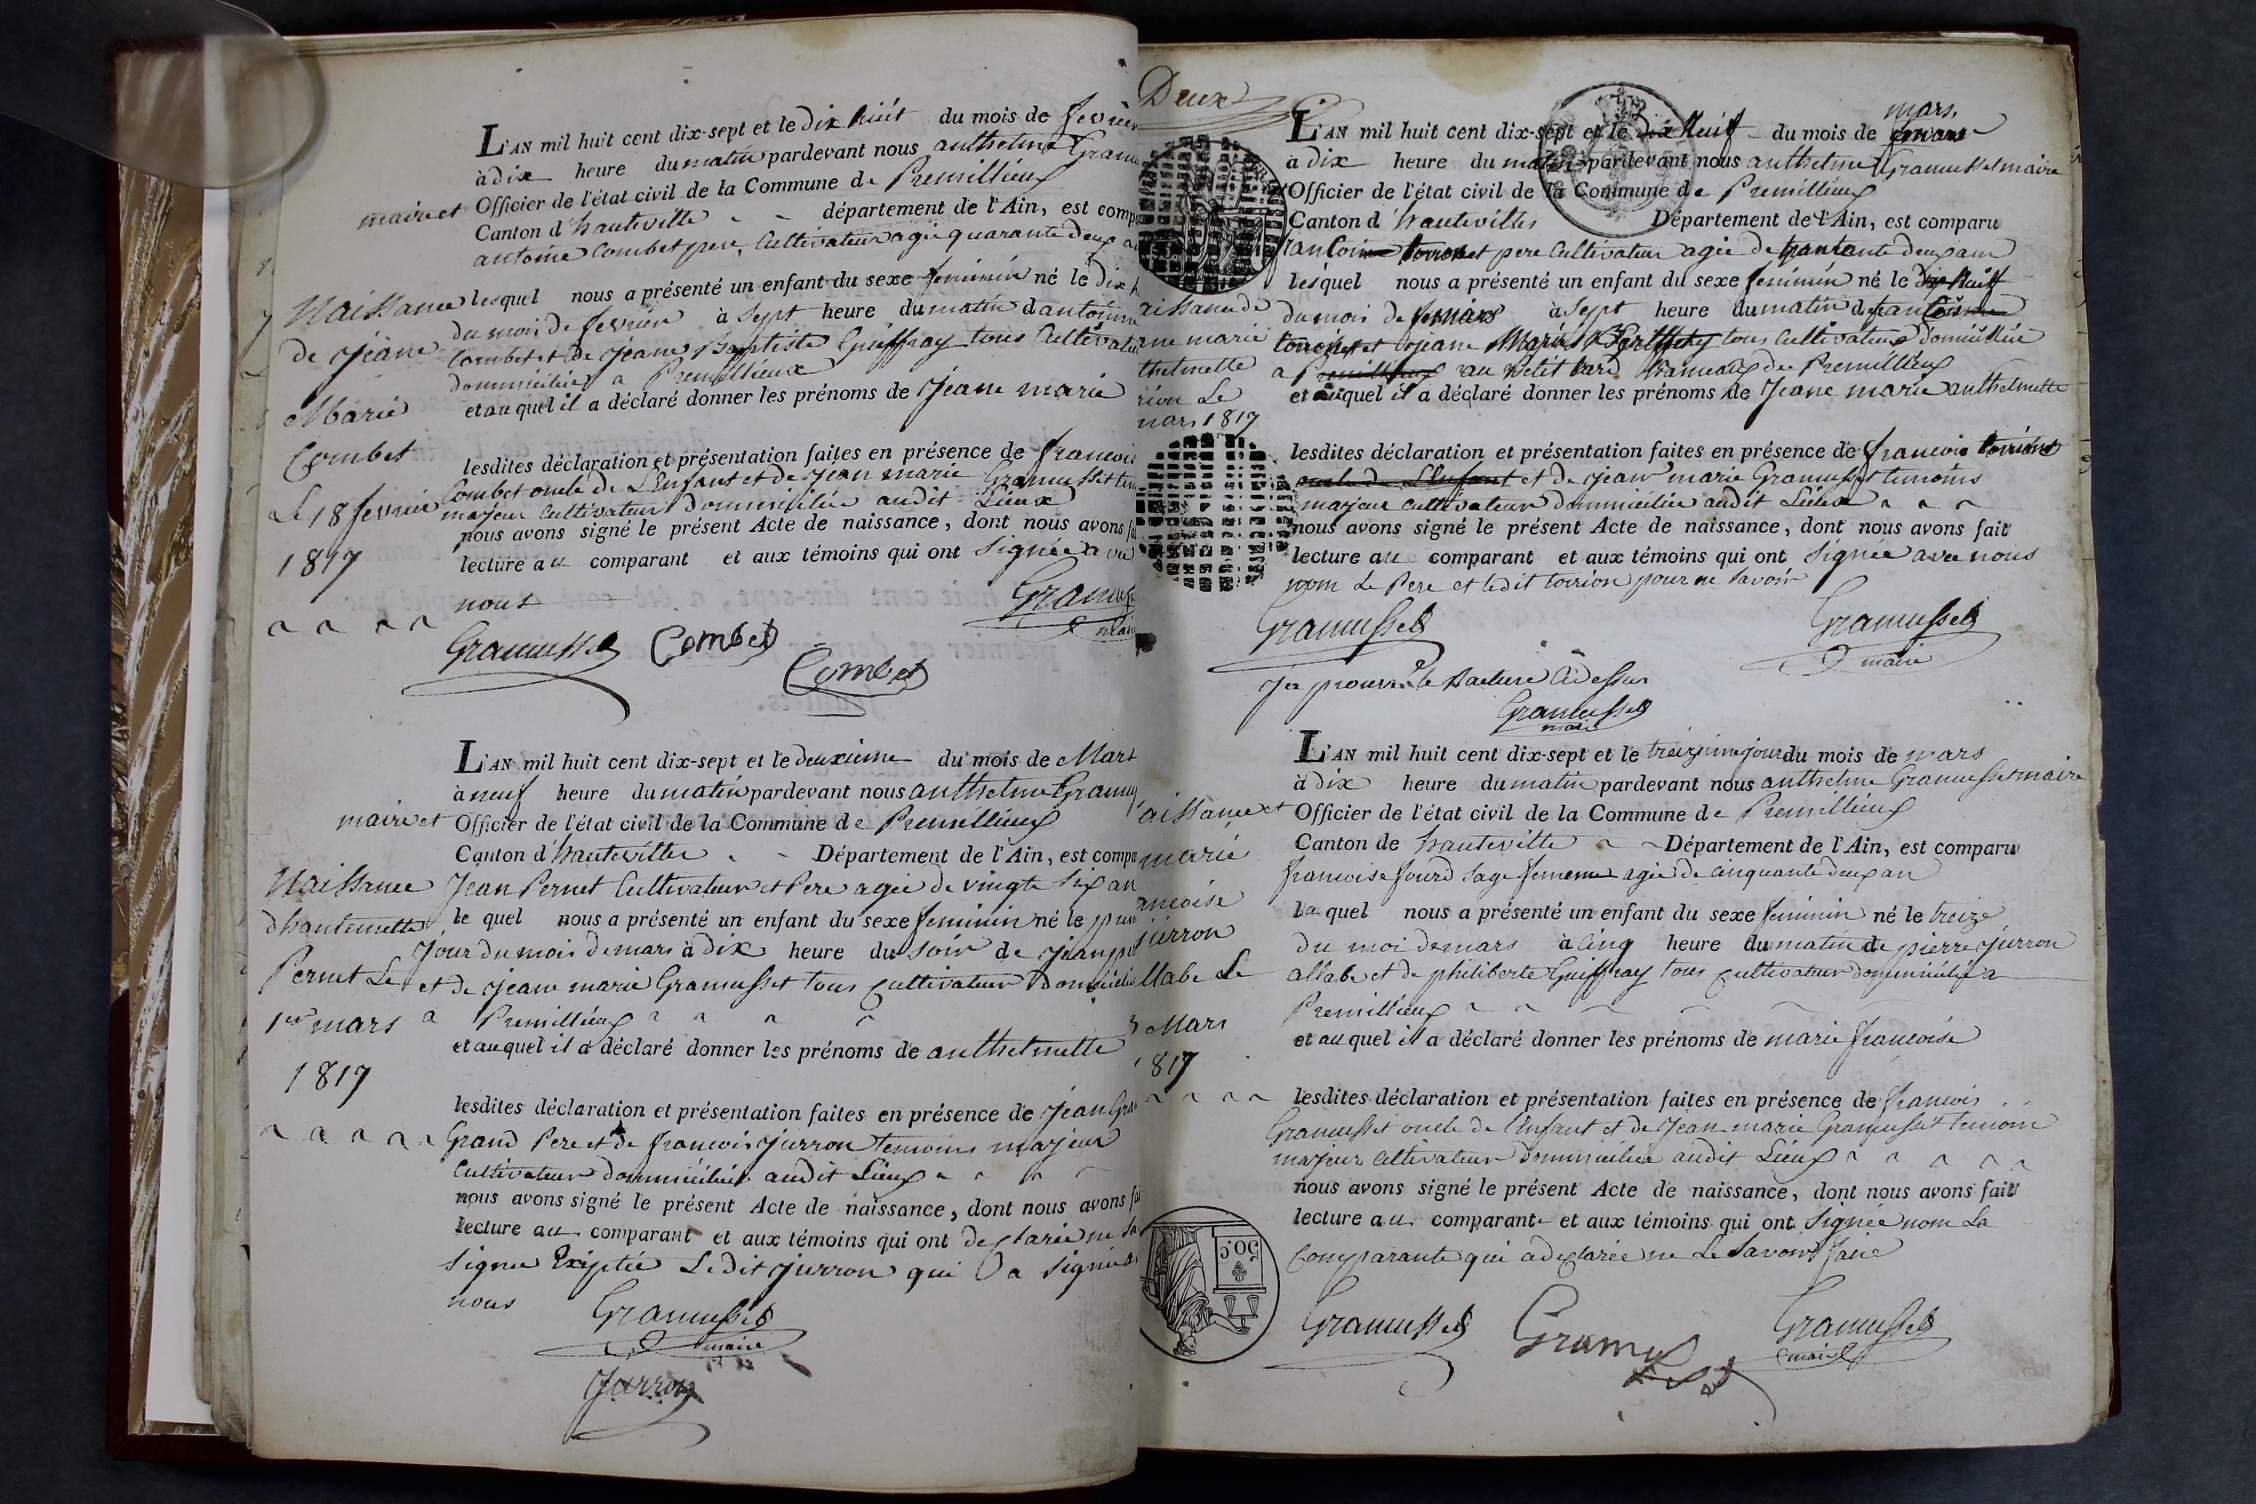 L'AN mil huit cent dix-sept et le dix huit du mois de fevrier
à dix heure du matin pardevant nous anthelme Gramu
maire et Officier de l'état civil de la Commune de Premillieux
Canton d'hauteville département de l'Ain, est compa
antoine Combet pere, Cultivateur agée quarante deux an
lesquel nous a présenté un enfant du sexe feminin né le dix h
du mois de fevrier à sept heure du matin d'antoine
Combet et de Jeane Baptiste Guiffray tous Cultivateu
dommicilier a Premillieux
et au quel il a déclaré donner les prénoms de Jeane marie
lesdites déclaration et présentation faites en présence de francois
Combet oncle de L'Enfant et de Jean marie Gramusset tem
majeur Cultivateur dommicilie audit Lieux
nous avons signé le présent Acte de naissance, dont nous avons fa
lecture au comparant et aux témoins qui ont signée avec
nous
Naissance
de Jeane
Marie
Combet
Le 18 fevrier
1817
Gramus
maire
Gramusset Combet
Combet
L'AN mil huit cent dix-sept et le deuxieme du mois de Mars
à neuf heure du matin pardevant nous anthelme Gramus
maire et Officier de l'état civil de la Commune de Premillieux
Canton d'hauteville Département de l'Ain, est compa
Jean Pernet Cultivateur et Pere agée de vingte six an
le quel nous a présenté un enfant du sexe feminin né le pre
Jour du mois de mars à dix heure du soir de Jean pe
et de Jeane marie Gramusset tous Cultivateur Dommicilie
a Premillieux
et au quel il a déclaré donner les prénoms de anthelmette
lesdites déclaration et présentation faites en présence de Jean Gra
Grand Pere et de francois Jurron temoins majeur
Cultivateur dommicilier audit Lieux
nous avons signé le présent Acte de naissance, dont nous avons fai
lecture au comparant et aux témoins qui ont declarée ne sa
signer Exceptée Ledit Jurron qui a signée a
nous
Naissance
Pernet Le
1er mars
1817
Gramusset
maire
Jurron
Deux
L'AN mil huit cent dix-sept et le dix Neuf du mois de mars
à dix heure du matin pardevant nous anthelme Gramusset maire
Officier de l'état civil de la Commune de Premillieux
Canton d'hauteville Département de l'Ain, est comparu
pere Cultivateur agée de deux ans
lesquel nous a présenté un enfant du sexe feminin né le dix Neuf
du mois de mars à sept heure du matin de
et Jeane Marie tous Cultivateur domicillie
a Premillieux au petit Hameaux de Premillieux
et auquel il a déclaré donner les prénoms de Jeane marie anthelmette
lesdites déclaration et présentation faites en présence de francois torrion
oncle de L'Enfant et de Jean marie Gramusset temoins
majeur cultivateur dommicilie audit Lieux
nous avons signé le présent Acte de naissance, dont nous avons fait
lecture au comparant et aux témoins qui ont signée avec nous
nom Le Pere et ledit torrion pour ne savoir
aissance de
ane marie
thelmette
rion Le
mars 1817
Gramusset Gramusset
maire
Gramusset
maire
L'AN mil huit cent dix-sept et le treizieme jour du mois de mars
à dix heure du matin pardevant nous anthelme Gramusset maire
et Officier de l'état civil de la Commune de Premillieux
Canton de hauteville Département de l'Ain, est comparu
francoise Jourd sage femme agée de cinquante deux an
la quel nous a présenté un enfant du sexe feminin né le treize
du moi de mars à Cinq heure du matin de pierre Jurron
allabe et de philiberte Guiffray tous Cultivateur dommicilié a
Premillieux
et au quel il a déclaré donner les prénoms de marie francoise
lesdites déclaration et présentation faites en présence de francois
Gramusset oncle de l'Enfant et de Jean marie Gramusset temoin
majeur Cultivateur Dommicilie audit Lieux
nous avons signé le présent Acte de naissance, dont nous avons fait
lecture au comparante et aux témoins qui ont signée nom La
Comparante qui a declarée ne Le savoir faire
aissance
marie
ancoise
jurron
llabe Le
3 Mars
1817
50 c
Gramusset Gramusset Gramusset
maire